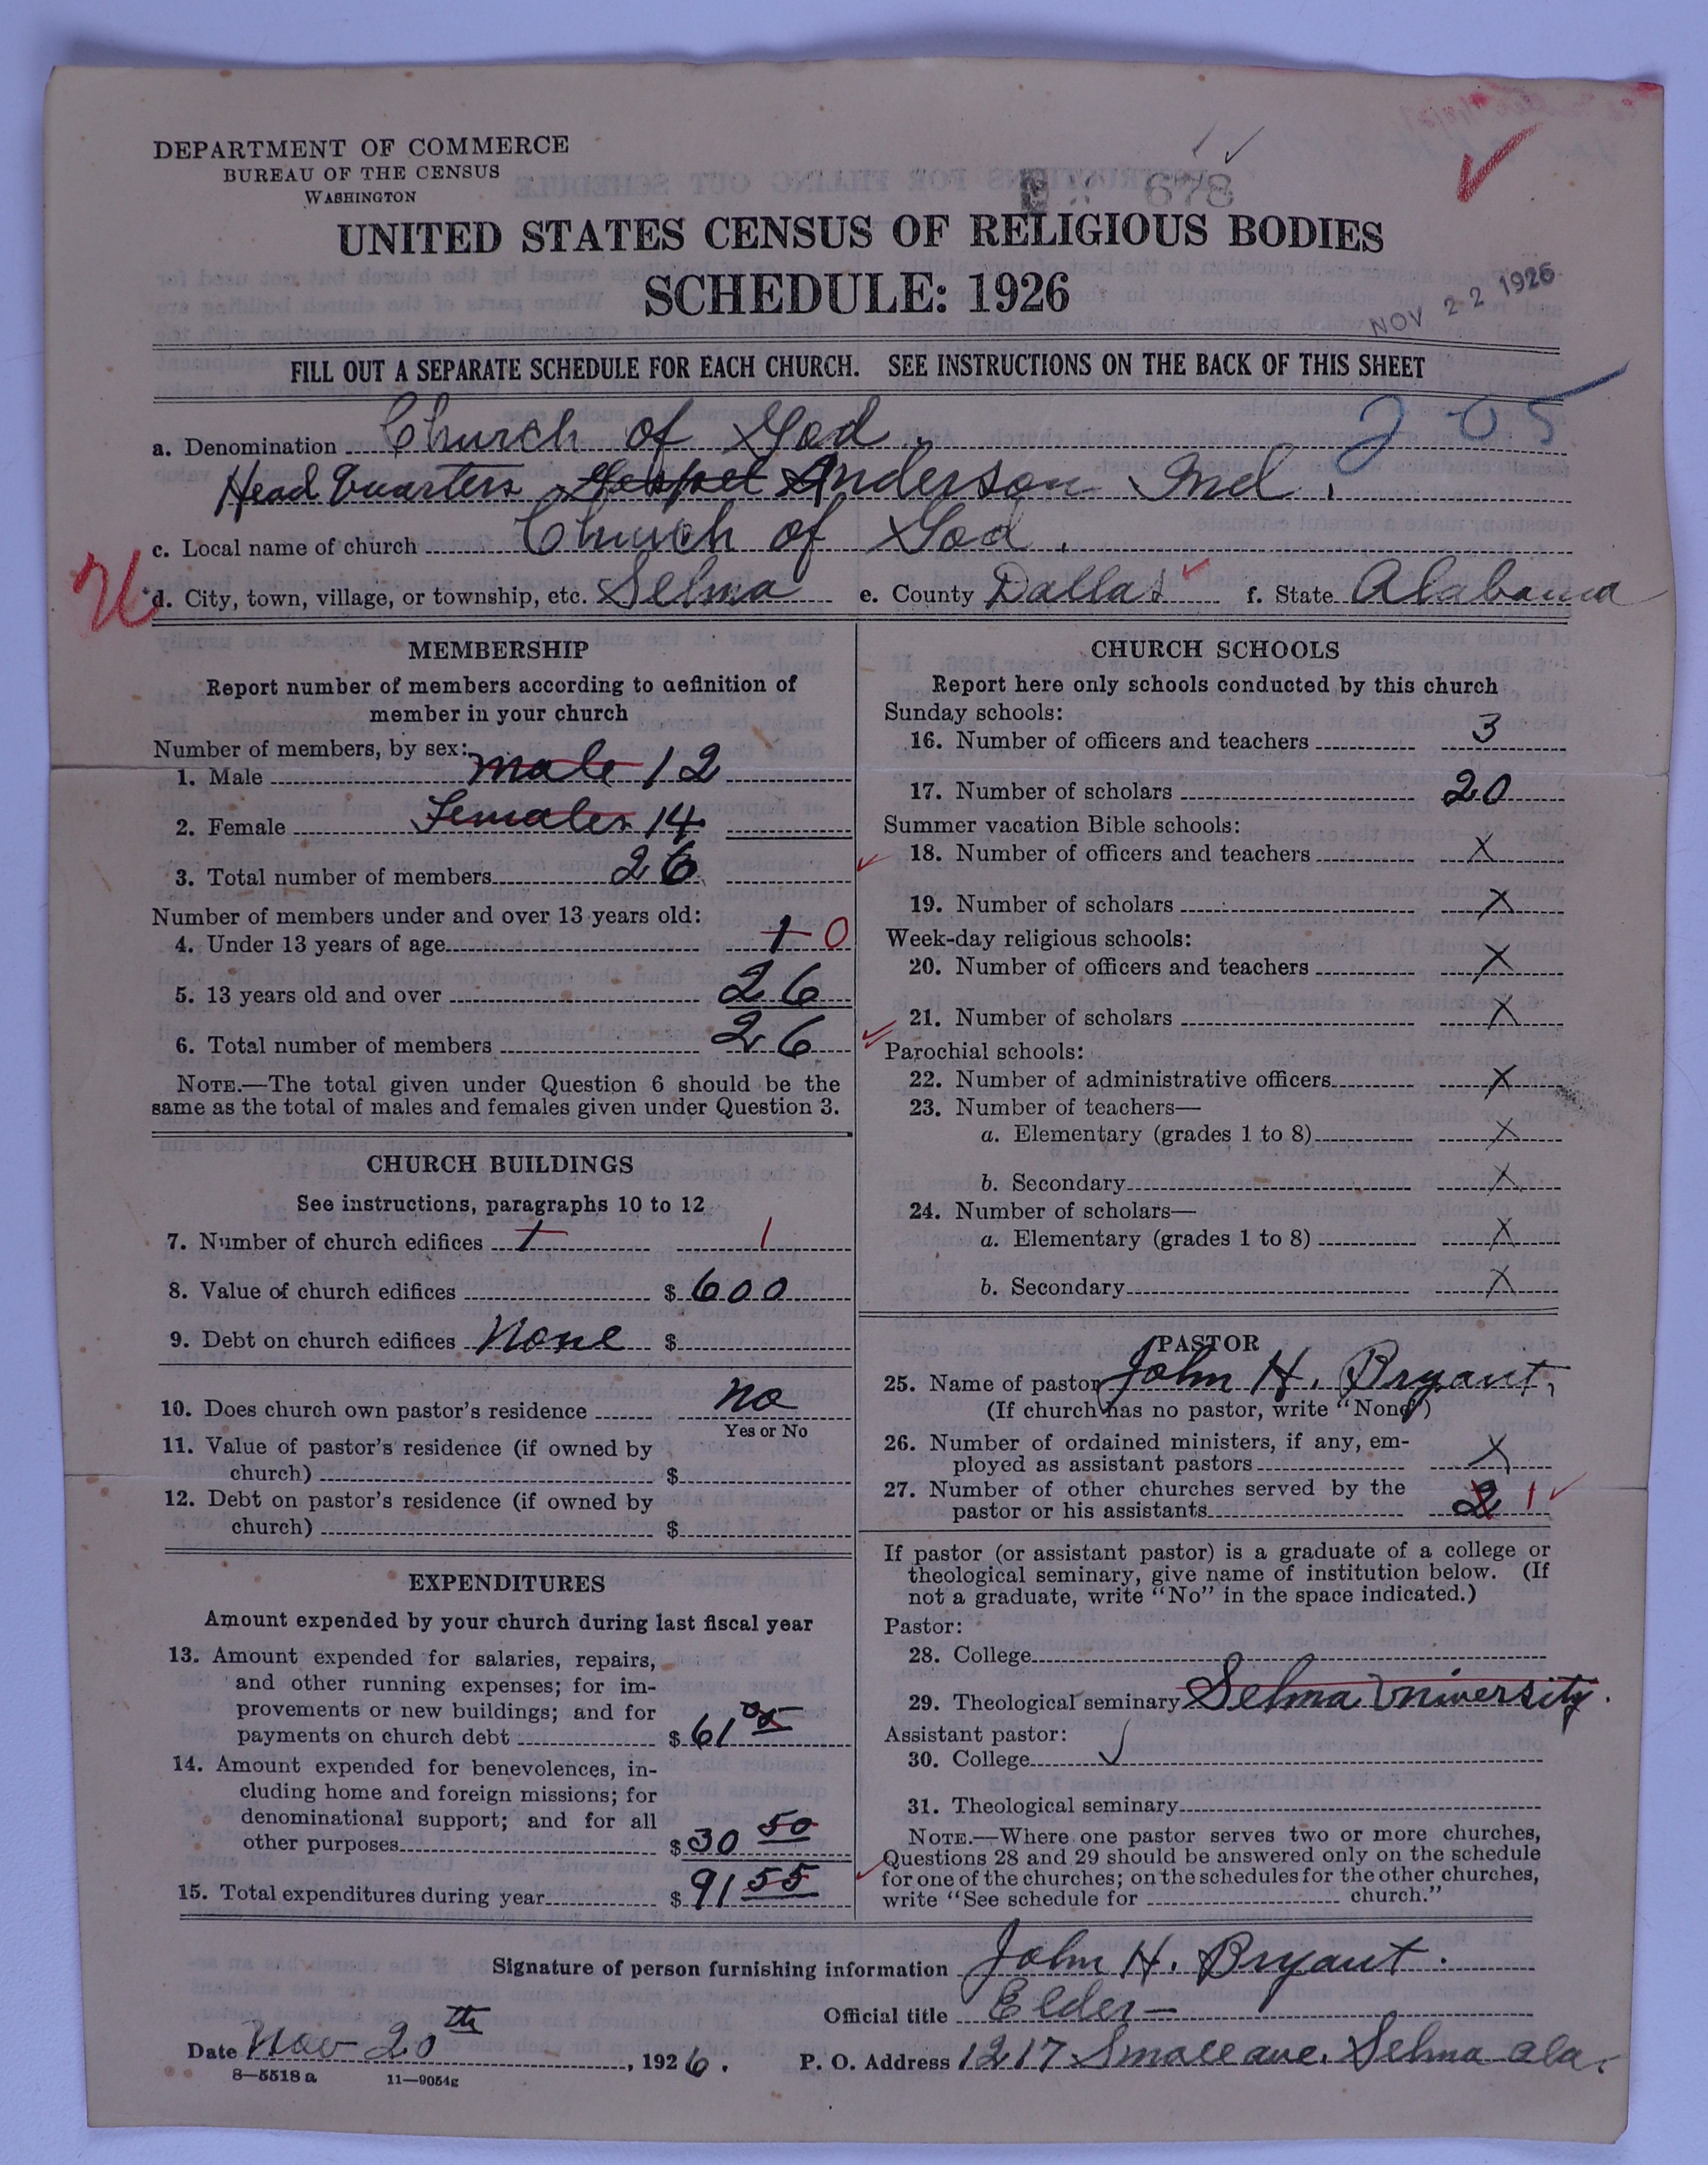 DEPARTMENT OF COMMERCE
BUREAU OF THE CENSUS
WASHINGTON
678
UNITED STATES CENSUS OF RELIGIOUS BODIES
SCHEDULE: 1926
NOV 22 1926
FILL OUT A SEPARATE SCHEDULE FOR EACH CHURCH. SEE INSTRUCTIONS ON THE BACK OF THIS SHEET
a. Denomination Church of God.
205
Head Quarters Gospel Anderson Ind.
c. Local name of church Church of God.
d. City, town, village, or township, etc. Selma e. County Dallas f. State Alabama
MEMBERSHIP
Report number of members according to definition of
member in your church
Number of members, by sex:
1. Male male 12
2. Female Females 14
3. Total number of members 26
Number of members under and over 13 years old:
4. Under 13 years of age 1 0
5. 13 years old and over 26
6. Total number of members 26
NOTE.—The total given under Question 6 should be the
same as the total of males and females given under Question 3.
CHURCH BUILDINGS
See instructions, paragraphs 10 to 12
7. Number of church edifices 1 1
8. Value of church edifices $ 600
9. Debt on church edifices None $
10. Does church own pastor's residence no
Yes or No
11. Value of pastor's residence (if owned by
church) $
12. Debt on pastor's residence (if owned by
church) $
EXPENDITURES
Amount expended by your church during last fiscal year
13. Amount expended for salaries, repairs,
and other running expenses; for im-
provements or new buildings; and for
payments on church debt $ 61 05
14. Amount expended for benevolences, in-
cluding home and foreign missions; for
denominational support; and for all
other purposes $ 30 50
15. Total expenditures during year $ 91 55
CHURCH SCHOOLS
Report here only schools conducted by this church
Sunday schools:
16. Number of officers and teachers 3
17. Number of scholars 20
Summer vacation Bible schools:
18. Number of officers and teachers X
19. Number of scholars X
Week-day religious schools:
20. Number of officers and teachers X
21. Number of scholars X
Parochial schools:
22. Number of administrative officers X
23. Number of teachers—
a. Elementary (grades 1 to 8) X
b. Secondary X
24. Number of scholars—
a. Elementary (grades 1 to 8) X
b. Secondary X
PASTOR
25. Name of pastor John H. Bryant,
(If church has no pastor, write "None")
26. Number of ordained ministers, if any, em-
ployed as assistant pastors X
27. Number of other churches served by the
pastor or his assistants 2 1
If pastor (or assistant pastor) is a graduate of a college or
theological seminary, give name of institution below. (If
not a graduate, write "No" in the space indicated.)
Pastor:
28. College
29. Theological seminary Selma University.
Assistant pastor:
30. College
31. Theological seminary
NOTE.—Where one pastor serves two or more churches,
Questions 28 and 29 should be answered only on the schedule
for one of the churches; on the schedules for the other churches,
write "See schedule for church."
Signature of person furnishing information John H. Bryant.
Official title Elder—
Date Nov 20th, 1926. P. O. Address 1217 Small ave. Selma Ala.
8—5518 a 11—9054g